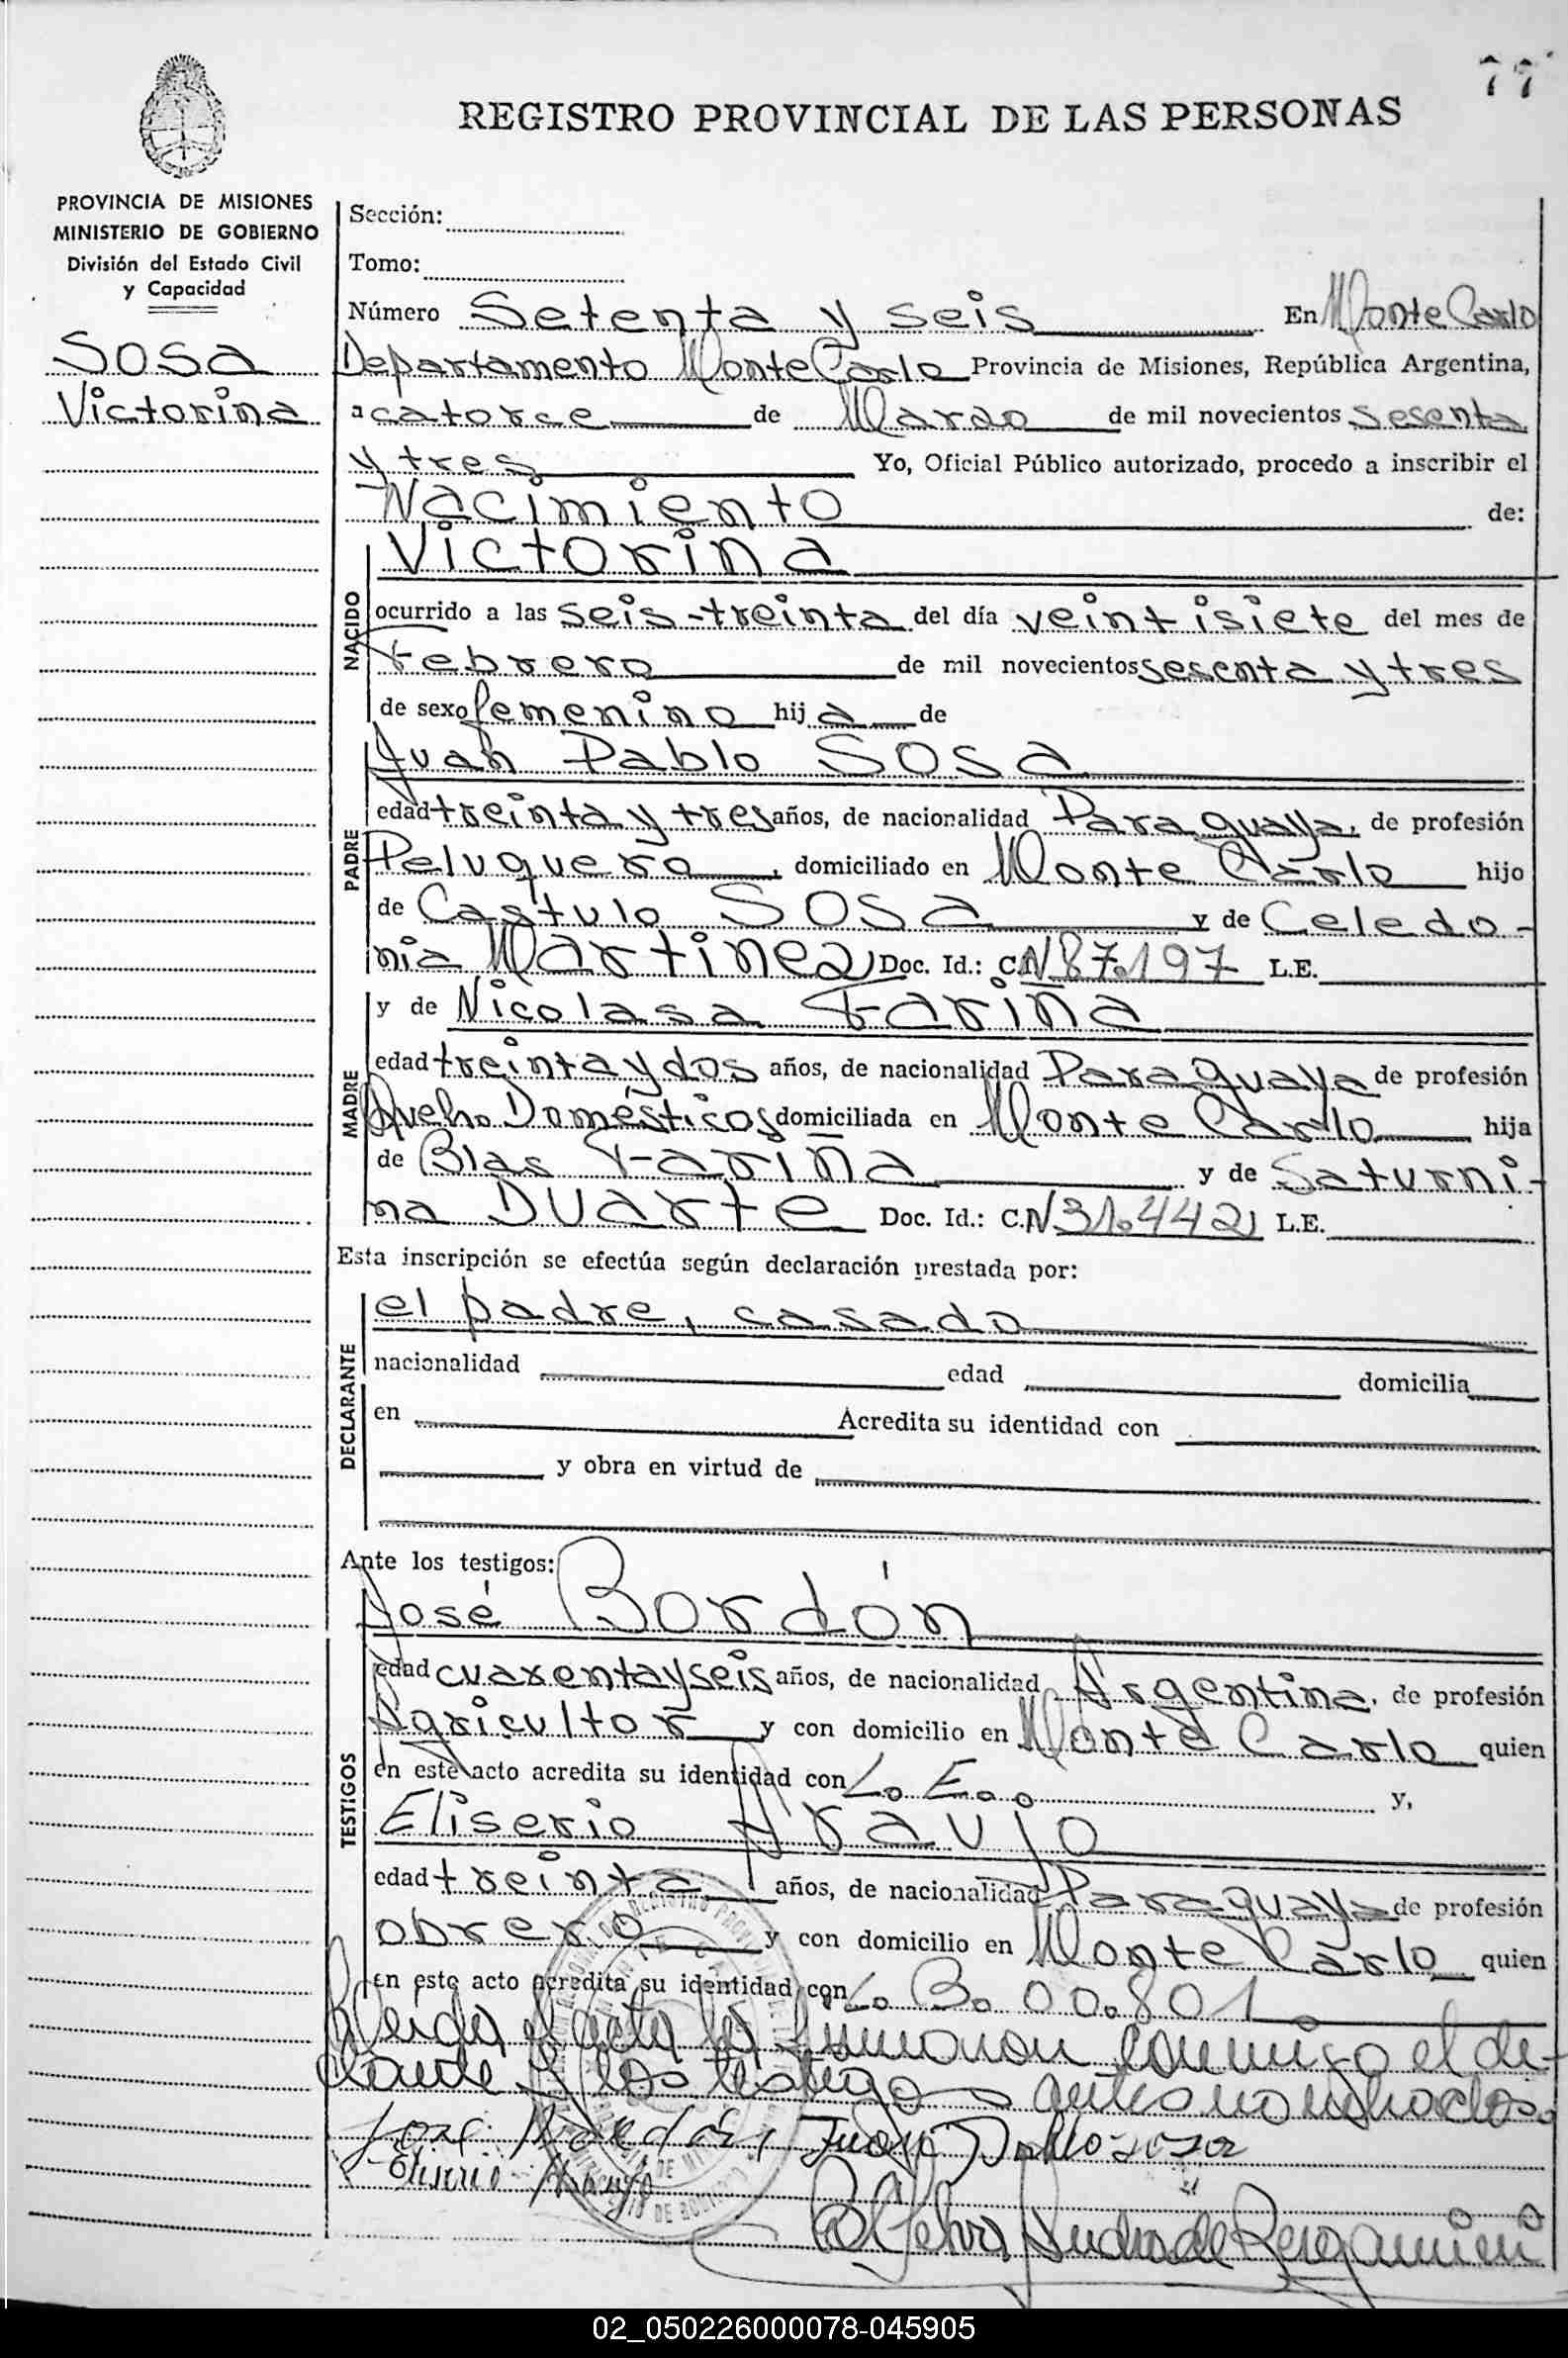 77
REGISTRO PROVINCIAL DE LAS PERSONAS
PROVINCIA DE MISIONES
MINISTERIO DE GOBIERNO
División del Estado Civil
y Capacidad
SOSA
Victorina
Sección:
Tomo:
Número Setenta y seis En Monte Carlo
Departamento Monte Carlo Provincia de Misiones, República Argentina,
a catorce de Marzo de mil novecientos sesenta
y tres Yo, Oficial Público autorizado, procedo a inscribir el
Nacimiento de:
Victorina
NACIDO
ocurrido a las seis-treinta del día veintisiete del mes de
Febrero de mil novecientos sesenta y tres
de sexo femenino hij a de
Juan Pablo SOSA
PADRE
edad treinta y tres años, de nacionalidad Paraguaya, de profesión
Peluquero, domiciliado en Monte Carlo hijo
de Castulo SOSA y de Celedo-
nia Martinez Doc. Id.: C.N 87.197 L.E.
y de Nicolasa Fariña
MADRE
edad treinta y dos años, de nacionalidad Paraguaya de profesión
Queha. Domésticos domiciliada en Monte Carlo hija
de Blas Fariña y de Saturni-
na Duarte Doc. Id.: C.N 31.442 L.E.
Esta inscripción se efectúa según declaración prestada por:
el padre, casado
DECLARANTE
nacionalidad edad domicilia
en Acredita su identidad con
y obra en virtud de
Ante los testigos:
José Bordón
TESTIGOS
edad cuarenta y seis años, de nacionalidad Argentina, de profesión
Agricultor y con domicilio en Monte Carlo quien
en este acto acredita su identidad con L. E. y,
Eliserio Araujo
edad treinta años, de nacionalidad Paraguaya de profesión
obrero y con domicilio en Monte Carlo quien
en este acto acredita su identidad con L. B. 00.801.
Leida el acta la firmaron conmigo el de-
clarante y los testigos antes nombrados.
Jose Bordón, Juan Pablo sosa
Eliserio Araujo
de Bergamini
02_050226000078-045905